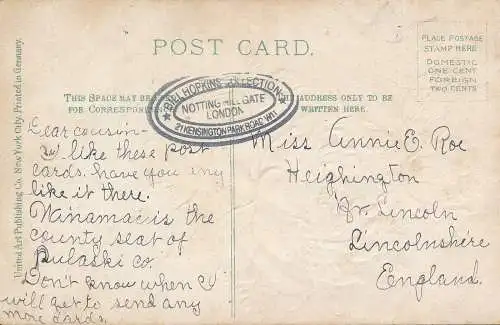 POST CARD.
PLACE POSTAGE
STAMP HERE
DOMESTIC
ONE CENT
FOREIGN
TWO CENTS
THIS SPACE MAY BE
FOR CORRESPON
ADDRESS ONLY TO BE
WRITTEN HERE.
BILL HOPKINS COLLECTION
NOTTING HILL GATE
LONDON
21 KENSINGTON PARK ROAD. W11
United Art Publishing Co. New York City. Printed in Germany.
Dear cousin—
I like these post
cards. have you any
like it there.
Winamac is the
county seat of
Pulaski co.
Don't know when I
will get to send any
more cards.
Miss Annie E. Roe
Heighington
Nr. Lincoln
Lincolnshire
England.